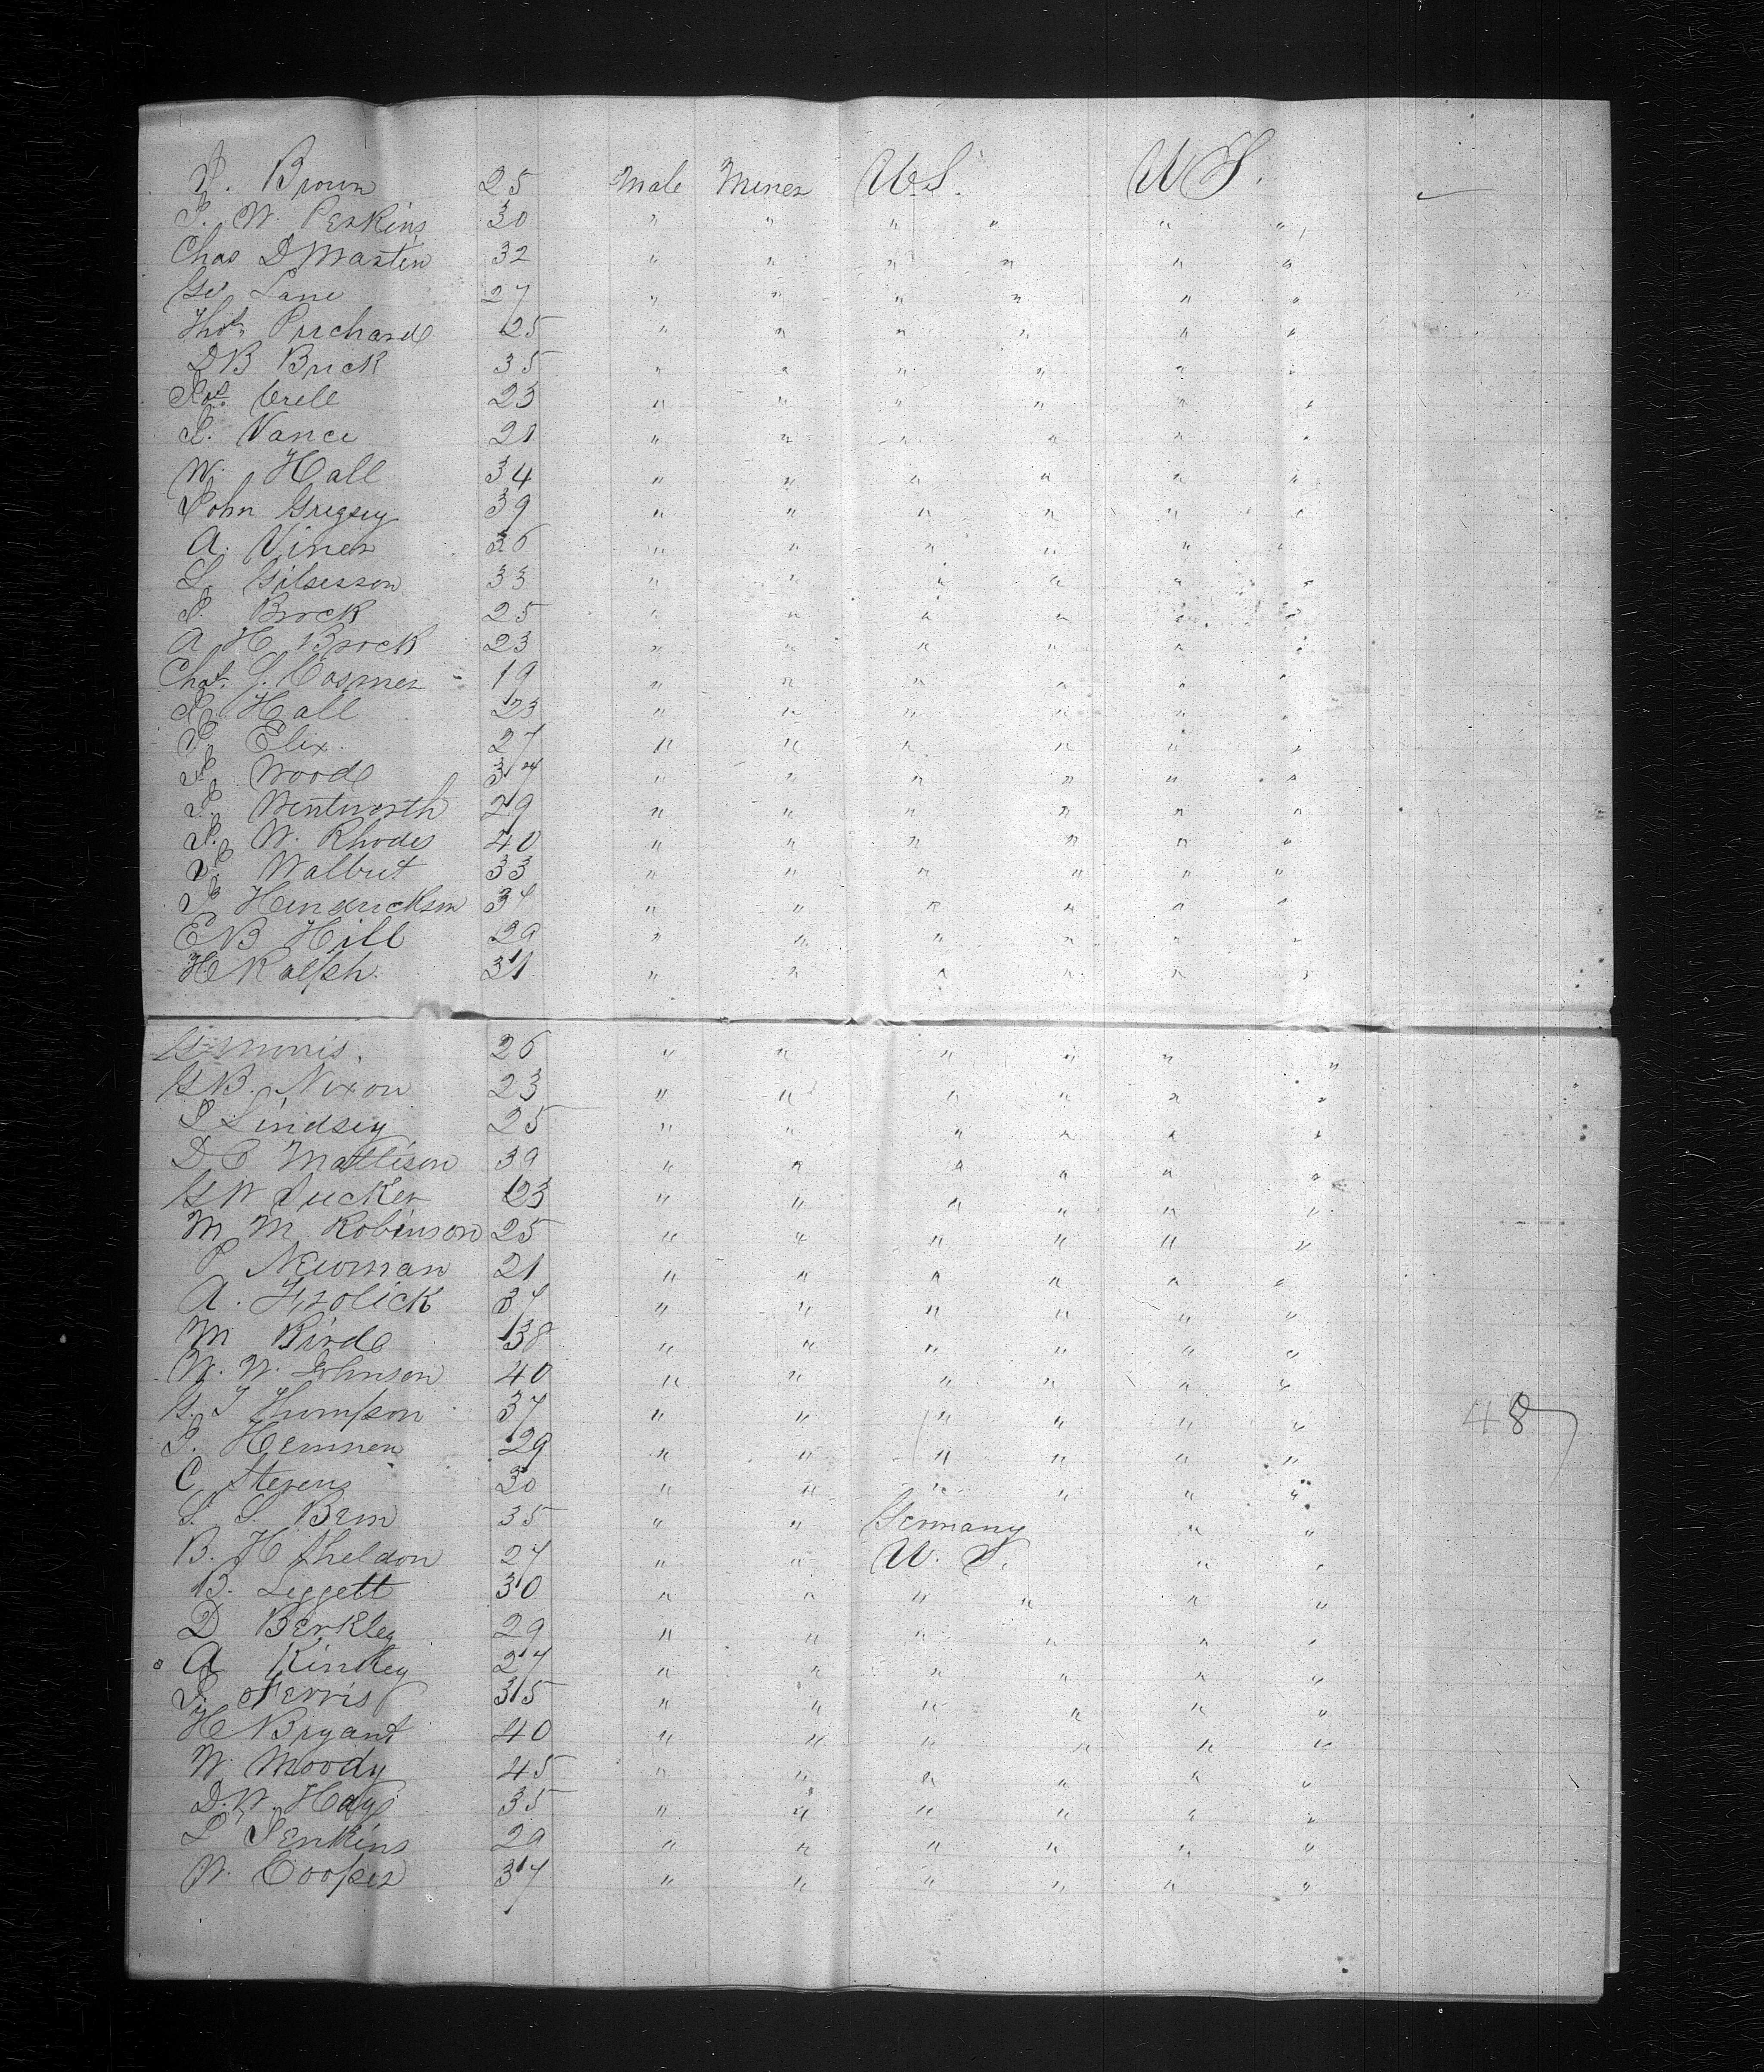 J. Brown 25 Male Miner U.S. U.S.
J. W. Perkins 30 " " " " " "
Chas D Martin 32 " " " " " "
Geo Lane 27 " " " " " "
Thos. Prichard 25 " " " " " "
D B Brick 35 " " " " " "
Jas. Crell 23 " " " " " "
J. Vance 21 " " " " " "
W. Hall 34 " " " " " "
John Grigsey 39 " " " " " "
A. Viner 36 " " " " " "
L. Gilsesson 33 " " " " " "
J. Brock 25 " " " " " "
A H Brock 23 " " " " " "
Chas. G. Cosmer 19 " " " " " "
J. Hall 23 " " " " " "
J. Elix. 27 " " " " " "
J. Wood 34 " " " " " "
J. Wentworth 29 " " " " " "
J. W. Rhodes 40 " " " " " "
J. Walbut 33 " " " " " "
J. Hendrickson 34 " " " " " "
E B Hill 29 " " " " " "
H Ralph. 31 " " " " " "
G Morris. 26 " " " " " "
G B. Nixon 23 " " " " " "
J Lindsey 25 " " " " " "
D C Mattison 39 " " " " " "
G W Tucker 23 " " " " " "
M M Robinson 25 " " " " " "
J Newman 21 " " " " " "
A. Frolick 37 " " " " " "
M Bird 38 " " " " " "
W. W. Johnson 40 " " " " " "
G. T Thompson 37 " " " " " " 48
J. Hemmen 29 " " " " " "
C Stevens 30 " " " " " "
S. S. Bem 35 " " Germany " "
B. H Sheldon 27 " " U. S. " "
B. Leggett 30 " " " " " "
D Berkley 29 " " " " " "
A Kinsley 27 " " " " " "
J. Ferris 35 " " " " " "
H Bryant 40 " " " " " "
W. Moody 45 " " " " " "
D. W. Hay 35 " " " " " "
L Jenkins 29 " " " " " "
W. Cooper 37 " " " " " "